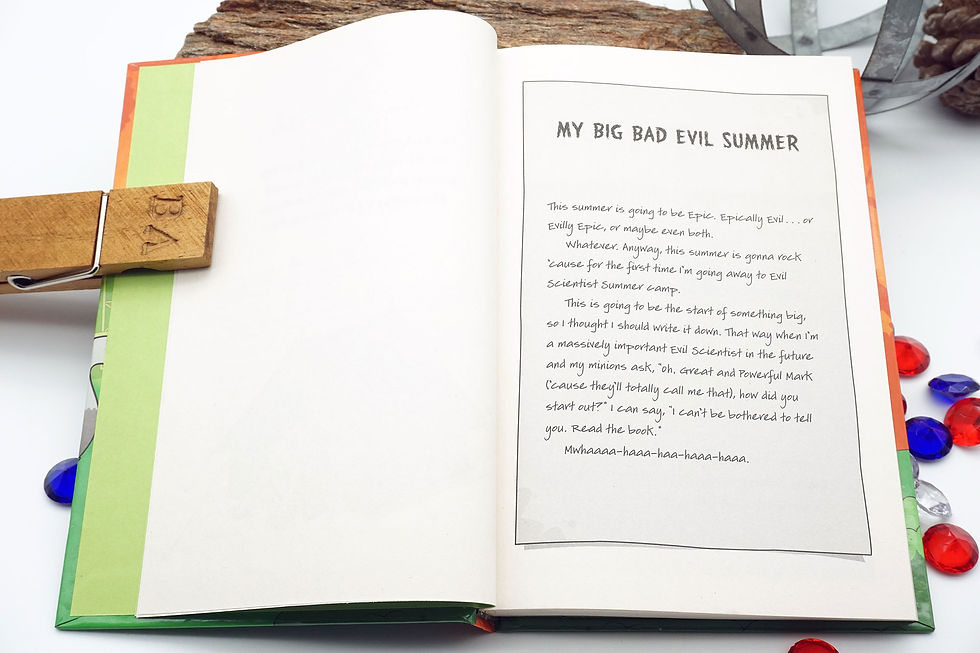 BA
MY BIG BAD EVIL SUMMER
This summer is going to be Epic. Epically Evil . . . or
Evilly Epic, or maybe even both.
Whatever. Anyway, this summer is gonna rock
'cause for the first time I'm going away to Evil
Scientist Summer Camp.
This is going to be the start of something big,
so I thought I should write it down. That way when I'm
a massively important Evil Scientist in the future
and my minions ask, "Oh, Great and Powerful Mark
('cause they'll totally call me that), how did you
start out?" I can say, "I can't be bothered to tell
you. Read the book."
Mwhaaaa-haaa-haa-haaa-haaa.